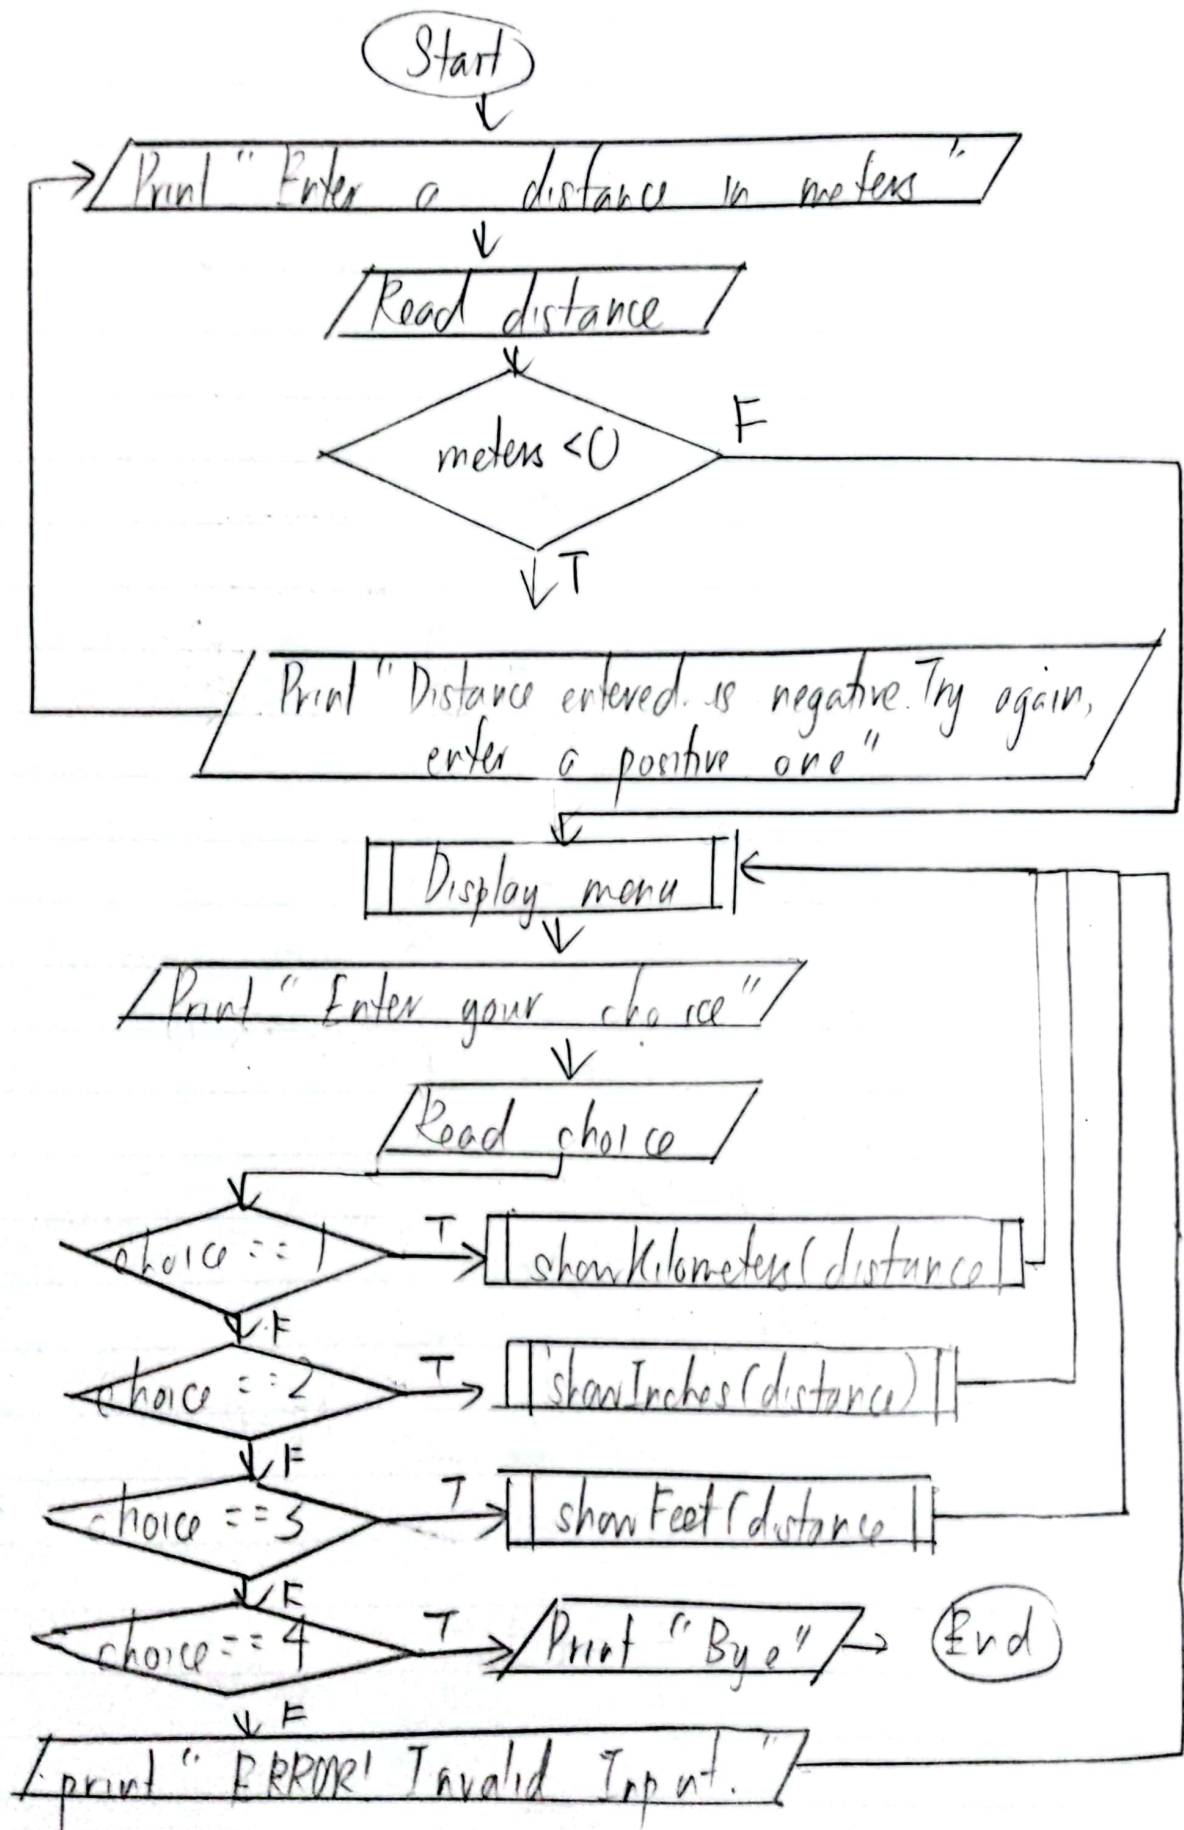 Start
Print " Enter a distance in meters "
Read distance
meters <0
F
T
Print " Distance entered is negative. Try again,
enter a positive one "
Display menu
Print " Enter your choice "
Read choice
choice == 1
T
showKilometers(distance
F
choice == 2
T
showInches(distance)
F
choice == 3
T
showFeet(distance
F
choice == 4
T
Print " Bye "
End
F
print " ERROR! Invalid Input. "